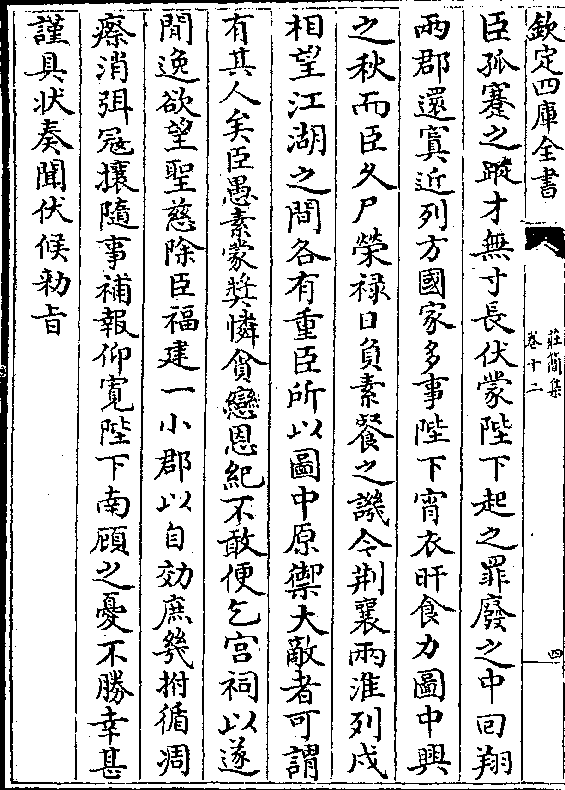 欽定四庫全書
莊簡集
卷十二
四
臣孤蹇之蹤才無寸長伏蒙陛下起之罪廢之中回翔
兩郡還寘近列方國家多事陛下宵衣旰食力圖中興
之秋而臣久尸榮祿日負素餐之譏今荆襄兩淮列戍
相望江湖之間各有重臣所以圖中原禦大敵者可謂
有其人矣臣愚素蒙奬憐貪戀恩紀不敢便乞宫祠以遂
閒逸欲望聖慈除臣福建一小郡以自効庶幾拊循凋
瘵消弭冦攘隨事補報仰寛陛下南顧之憂不勝幸甚
謹具状奏聞伏候勅旨